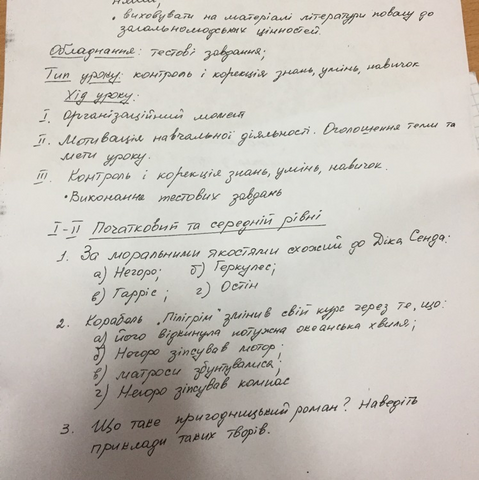 ними;
• виховувати на матеріалі літератури повагу до
загальнолюдських цінностей.
Обладнання: тестові завдання;
Тип уроку: контроль і корекція знань, умінь, навичок
Хід уроку:
I. Організаційний момент
II. Мотивація навчальної діяльності. Оголошення теми та
мети уроку.
III. Контроль і корекція знань, умінь, навичок.
• Виконання тестових завдань
I-II Початковий та середній рівні
1. За моральними якостями схожий до Діка Сенда:
а) Негоро; б) Геркулес;
в) Гарріс; г) Остін
2. Корабель „Пілігрім" змінив свій курс через те, що:
а) його відкинула потужна океанська хвиля;
б) Негоро зіпсував мотор;
в) матроси збунтувалися;
г) Негоро зіпсував компас
3. Що таке пригодницький роман? Наведіть
приклади таких творів.